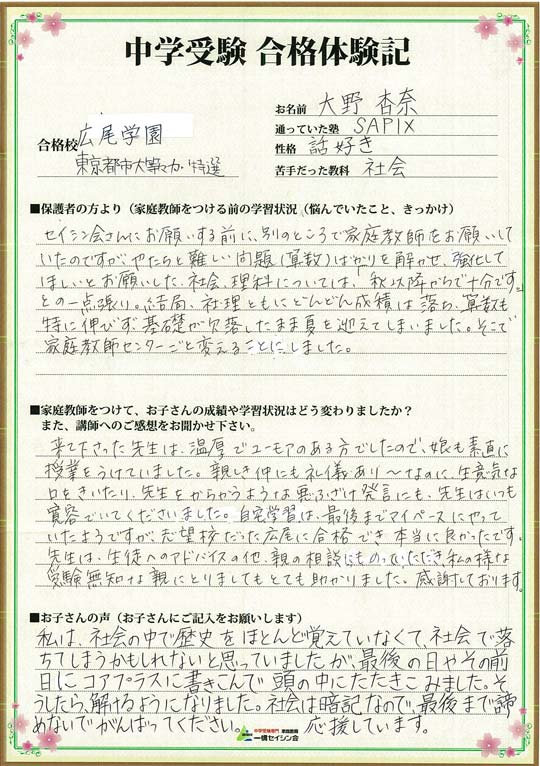 中学受験 合格体験記
お名前 大野 杏奈
通っていた塾 SAPIX
合格校 広尾学園
性格 話好き
東京都市大等々力 特選
苦手だった教科 社会
■保護者の方より（家庭教師をつける前の学習状況（悩んでいたこと、きっかけ）
セイシン会さんにお願いする前に、別のところで家庭教師をお願いして
いたのですが、やたらと難しい問題（算数）ばかりを解かせ、強化して
ほしいとお願いした、社会、理科については、「秋以降からで十分です」
との一点張り。結局、社理ともにどんどん成績は落ち、算数も
特に伸びず、基礎が欠落したまま夏を迎えてしまいました。そこで
家庭教師センターごと変えることにしました。
■家庭教師をつけて、お子さんの成績や学習状況はどう変わりましたか？
また、講師へのご感想をお聞かせ下さい。
来て下さった先生は、温厚でユーモアのある方でしたので、娘も素直に
授業をうけていました。親しき仲にも礼儀あり〜なのに、生意気な
口をきいたり、先生をからかうような悪ふざけ発言にも、先生はいつも
寛容でいてくださいました。自宅学習は、最後までマイペースにやって
いたようですが、志望校だった広尾に合格でき本当に良かったです。
先生は、生徒へのアドバイスの他、親の相談にものっていただき、私の様な
受験無知な親にとりましてもとても助かりました。感謝しております。
■お子さんの声（お子さんにご記入をお願いします）
私は、社会の中で歴史をほとんど覚えていなくて、社会で落
ちてしまうかもしれないと思っていましたが、最後の日やその前
日にコアプラスに書きこんで頭の中にたたきこみました。そ
うしたら、解けるようになりました。社会は暗記なので、最後まで諦
めないでがんばってください。 応援しています。
中学受験専門 家庭教師
一橋セイシン会